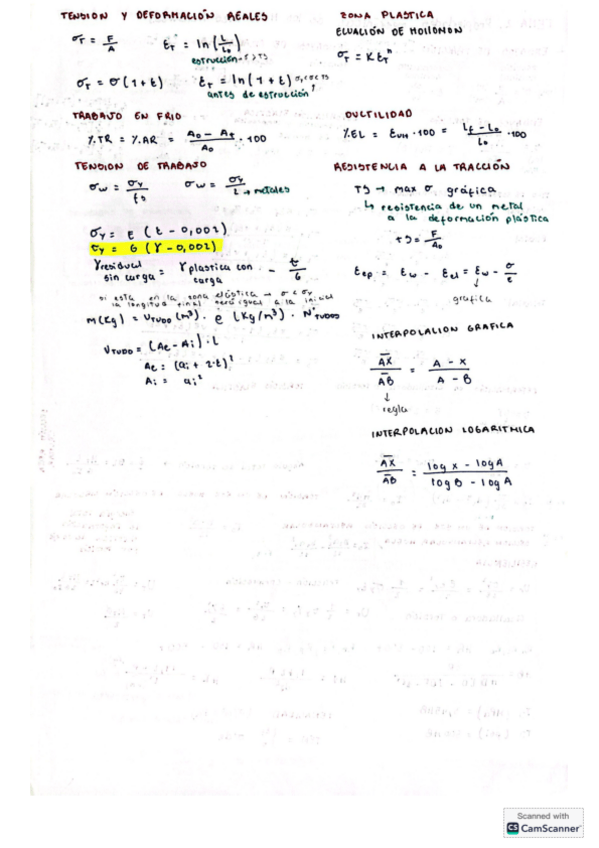 TENSION Y DEFORMACIÓN REALES
σT = F/A   ET = ln(L/L0)
estrucción σ > TS
σT = σ(1+ε)   ET = ln(1+ε) σy<σ<TS
antes de estrucción
TRABAJO EN FRIO
%TR = %AR = (A0 - Af)/A0 · 100
TENSION DE TRABAJO
σw = σy/fs   σw = σy/2 → metales
σy = E (ε - 0,002)
τy = G (γ - 0,002)
γresidual sin carga = γplastica con carga - τ/G
si esta en la zona elástica → σ < σy
la longitud final será igual a la inicial
M(Kg) = VTUBO(m³) · ρ (Kg/m³) · NºTUBOS
VTUBO = (Ae - Ai) · L
Ae = (ai + 2·t)²
Ai = ai²
ZONA PLASTICA
ECUACIÓN DE HOLLOMON
σT = K ETⁿ
DUCTILIDAD
%EL = · 100 = (Lf - L0)/L0 · 100
RESISTENCIA A LA TRACCIÓN
TS → max σ gráfica
↳ resistencia de un metal
a la deformación plástica
TS = F/A0
Eep = Ew - Eel = Ew - σ/E
↓
grafica
INTERPOLACION GRAFICA
AX/AB = (A - X)/(A - B)
↓
regla
INTERPOLACION LOGARITMICA
AX/AB = (log X - log A)/(log B - log A)
Scanned with
CS CamScanner